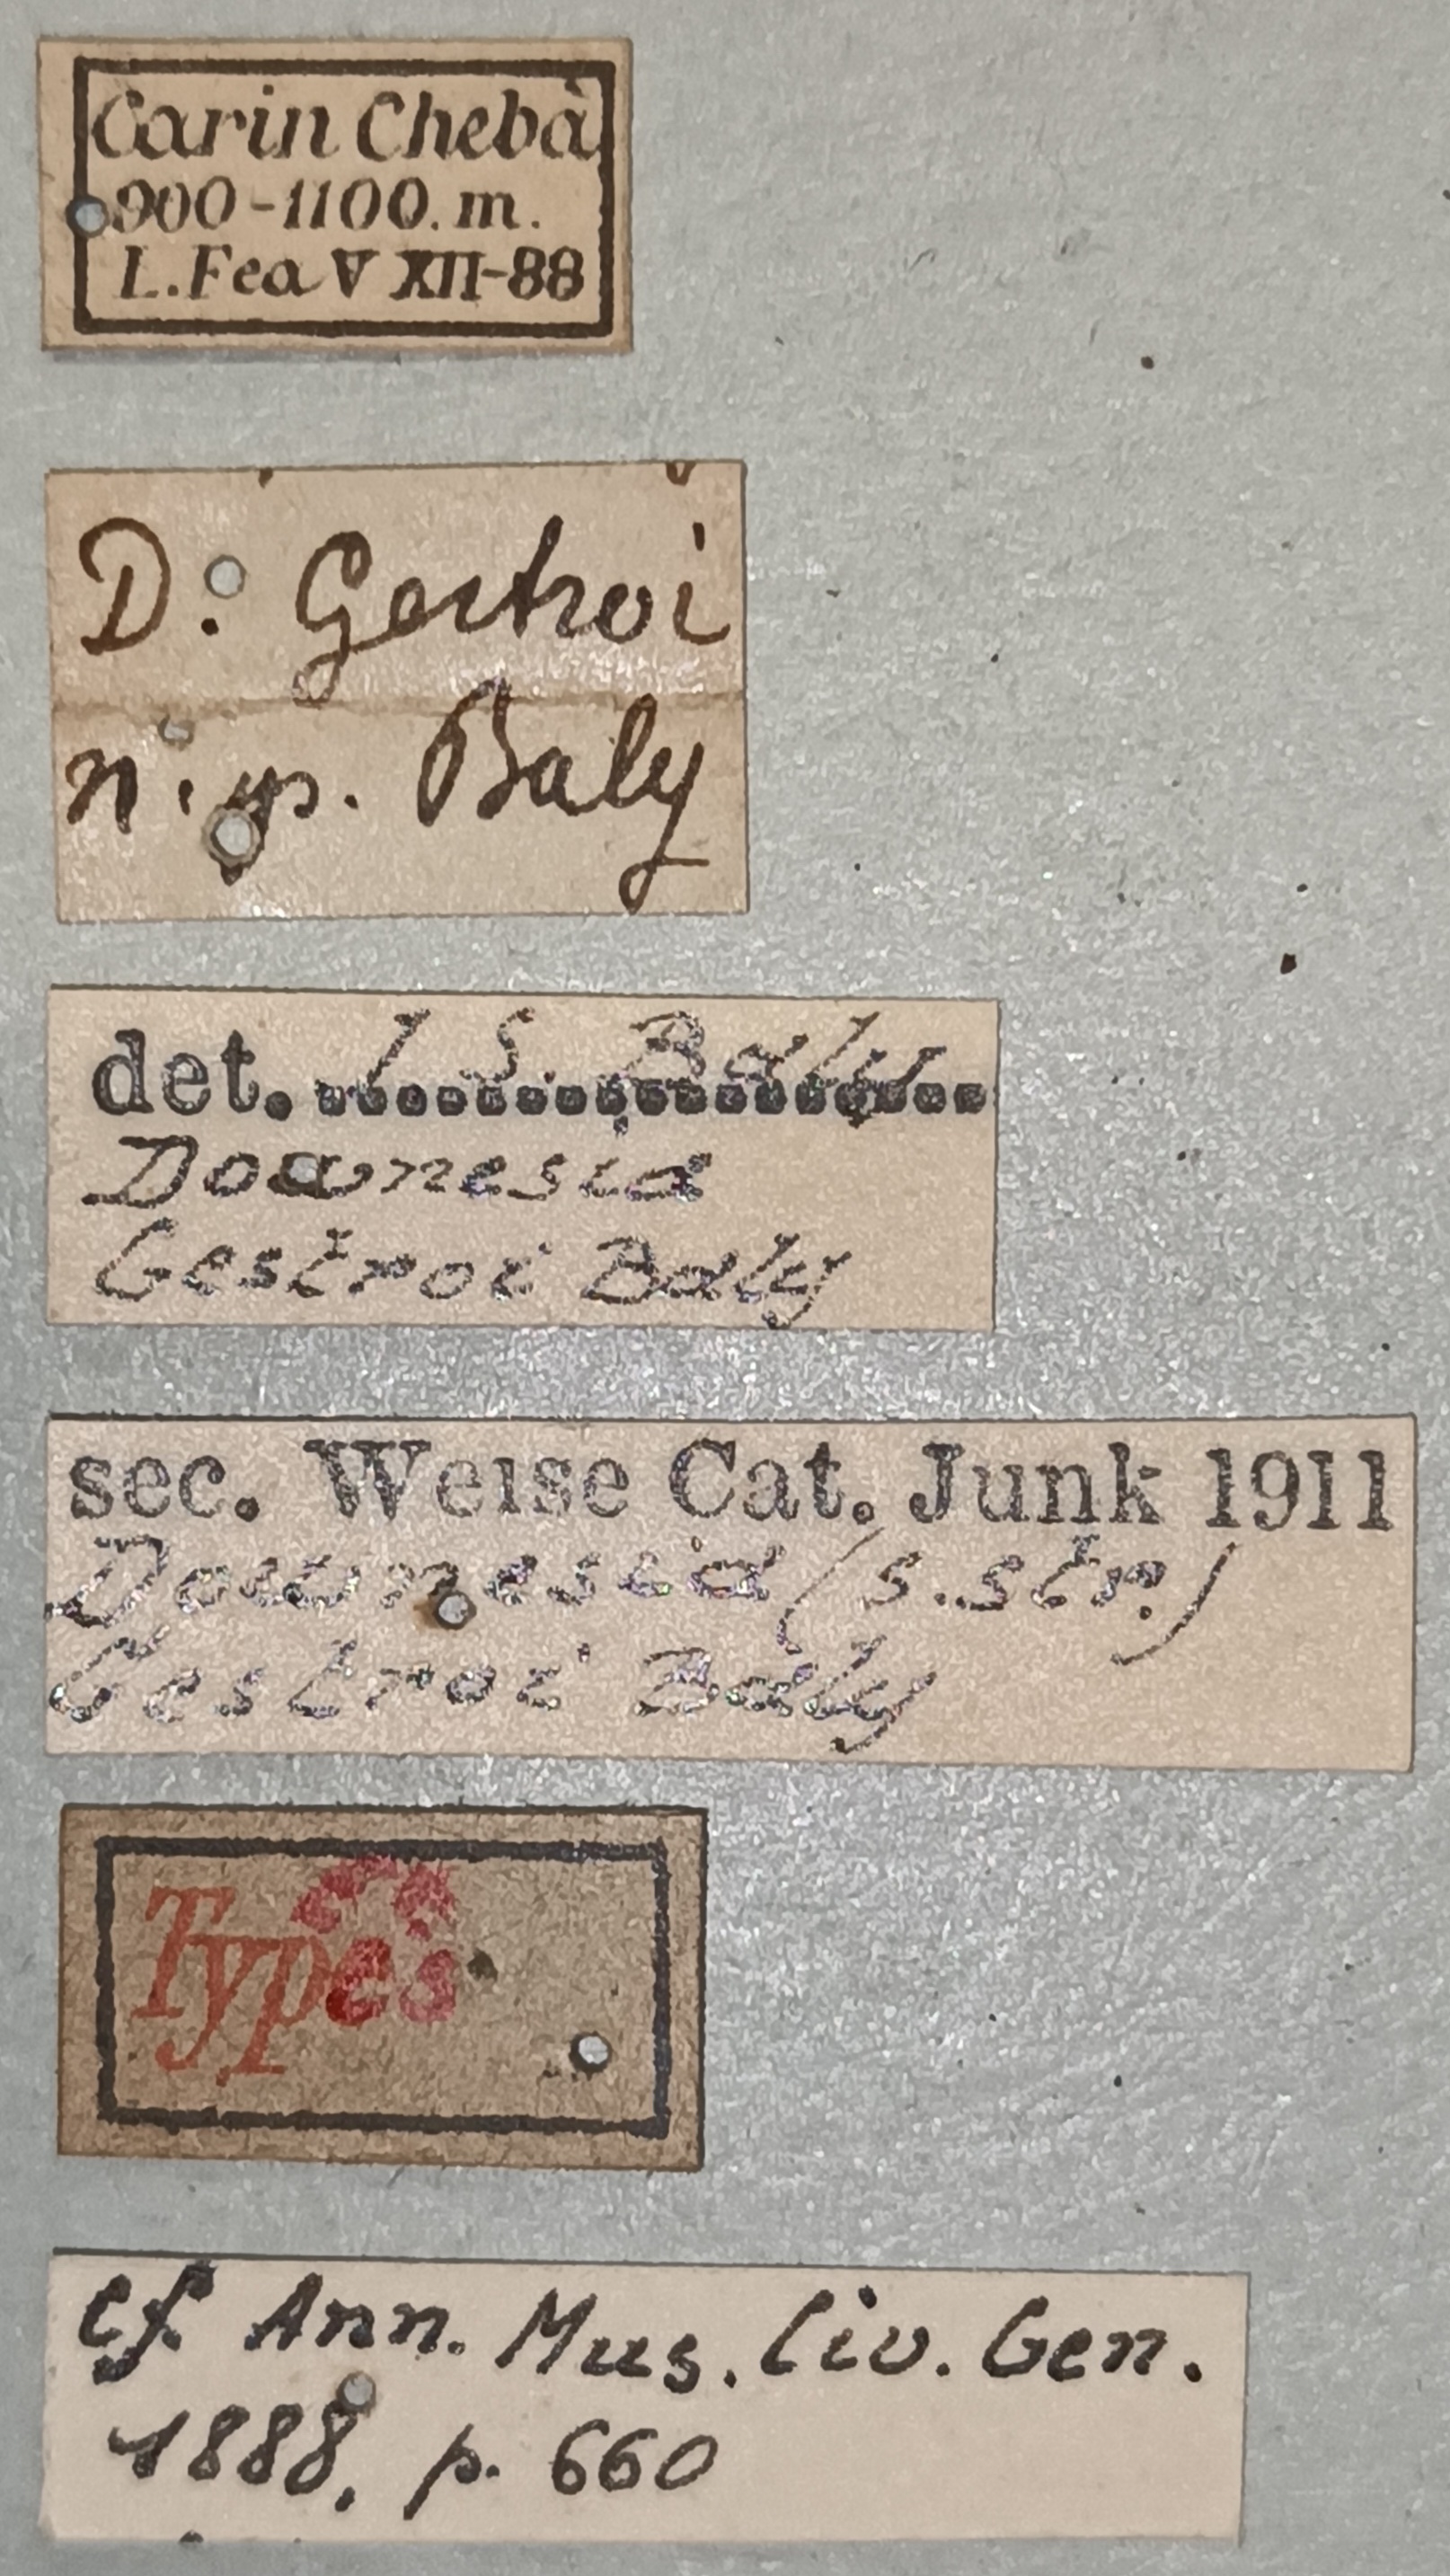 Carin Chebà
900-1100. m.
L. Fea V XII-88
D. Gestroi
n. sp. Baly
det. J. S. Baly
Downesia
Gestroi Baly
sec. Weise Cat. Junk 1911
Downesia (s. str.)
Gestroi Baly
Types
cf. Ann. Mus. Civ. Gen.
1888, p. 660